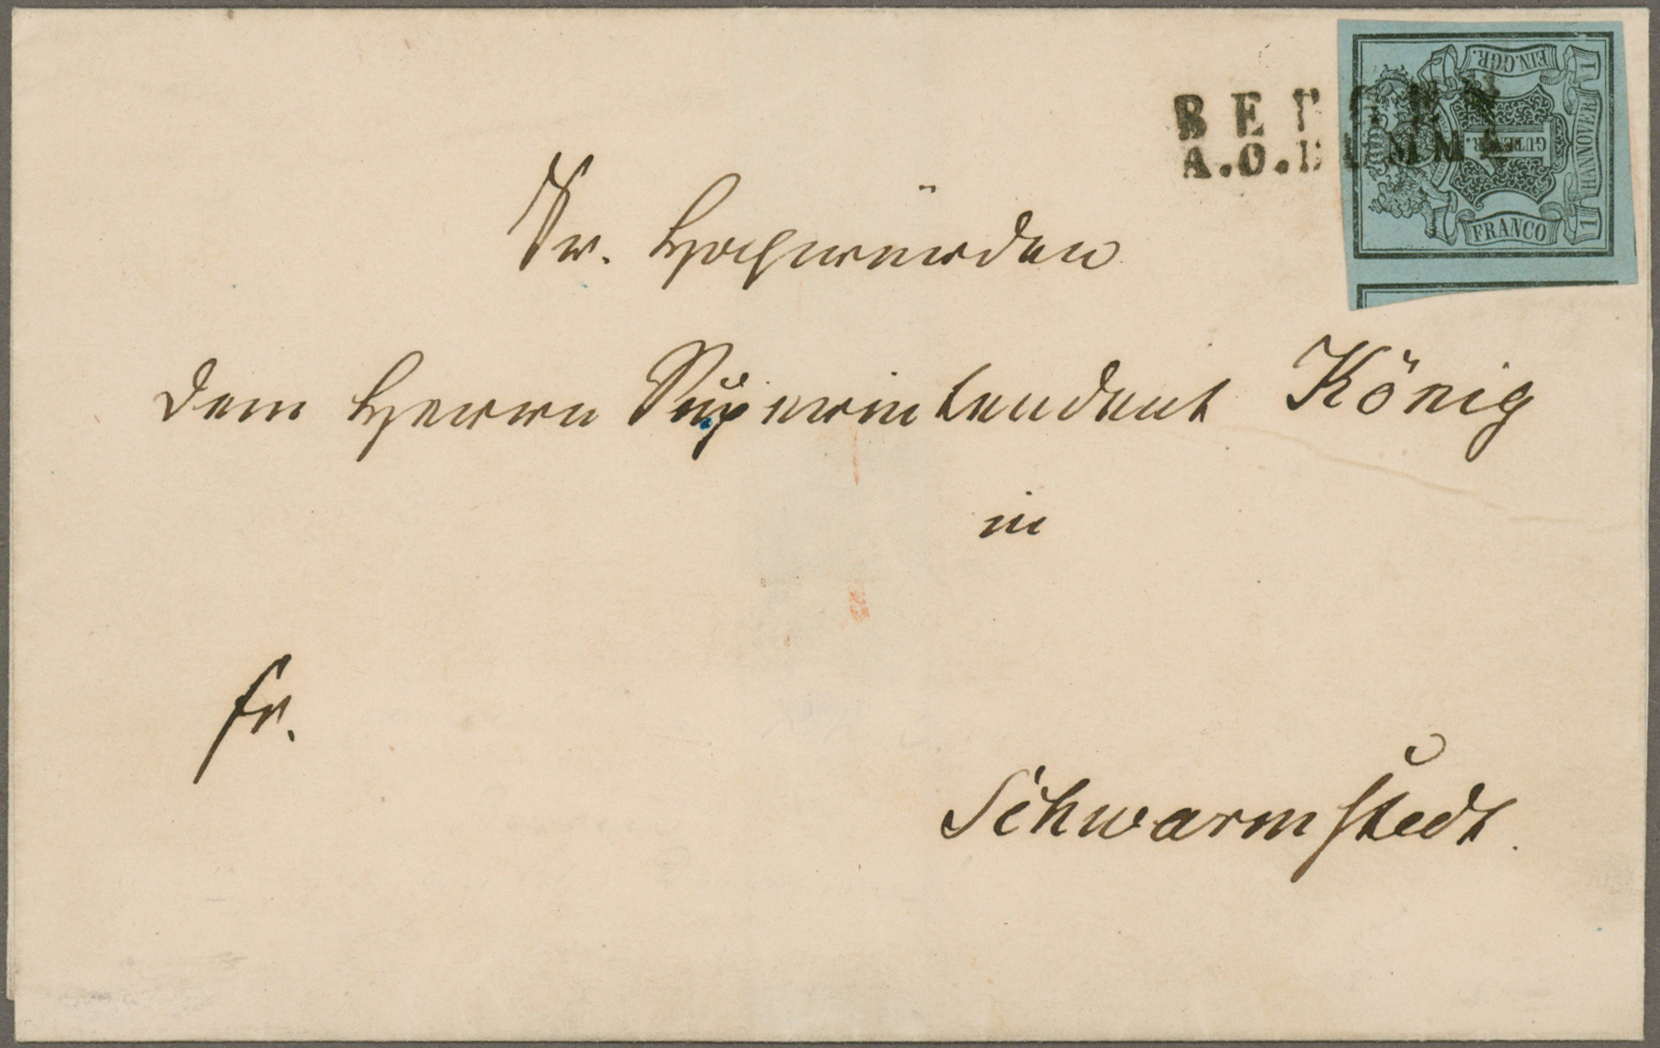 BERGEN
A.O.DUMME
EIN.GGR.
1 HANNOVER 1
GUTEGR.
FRANCO
Sr. Hochwürden
dem Herrn Superintendent König
in
fr.
Schwarmstedt.